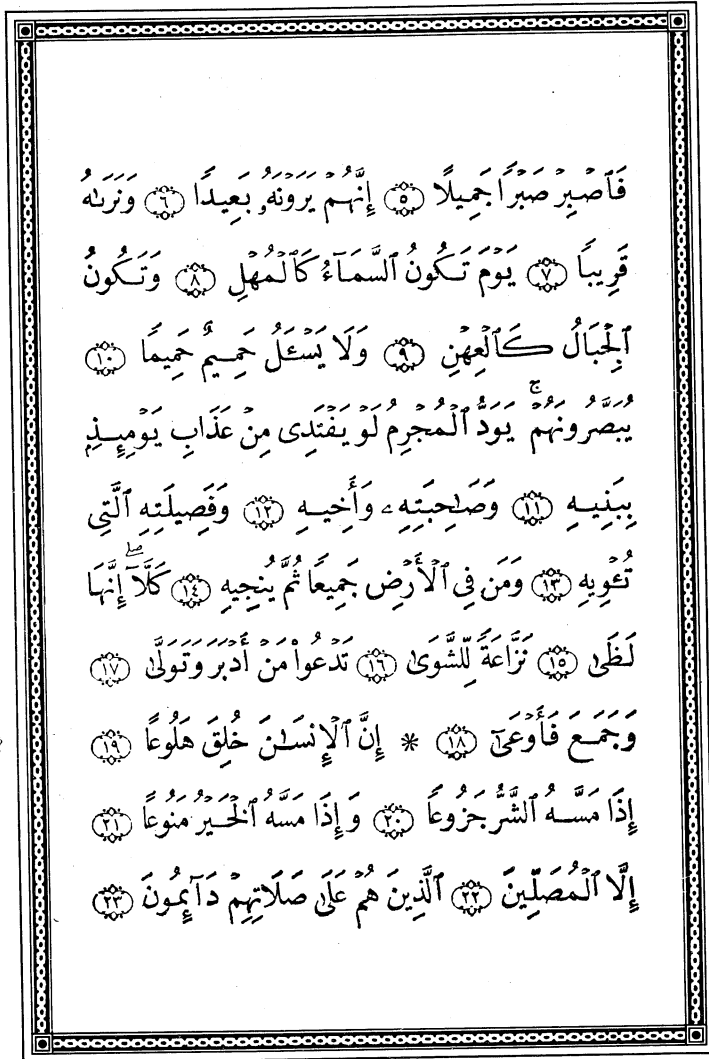 فَٱصۡبِرۡ صَبۡرٗا جَمِيلًا ٥ إِنَّهُمۡ يَرَوۡنَهُۥ بَعِيدٗا ٦ وَنَرَىٰهُ
قَرِيبٗا ٧ يَوۡمَ تَكُونُ ٱلسَّمَآءُ كَٱلۡمُهۡلِ ٨ وَتَكُونُ
ٱلۡجِبَالُ كَٱلۡعِهۡنِ ٩ وَلَا يَسۡـَٔلُ حَمِيمٌ حَمِيمٗا ١٠
يُبَصَّرُونَهُمۡۚ يَوَدُّ ٱلۡمُجۡرِمُ لَوۡ يَفۡتَدِي مِنۡ عَذَابِ يَوۡمِئِذِۭ
بِبَنِيهِ ١١ وَصَٰحِبَتِهِۦ وَأَخِيهِ ١٢ وَفَصِيلَتِهِ ٱلَّتِي
تُـٔۡوِيهِ ١٣ وَمَن فِي ٱلۡأَرۡضِ جَمِيعٗا ثُمَّ يُنجِيهِ ١٤ كَلَّآۖ إِنَّهَا
لَظَىٰ ١٥ نَزَّاعَةٗ لِّلشَّوَىٰ ١٦ تَدۡعُواْ مَنۡ أَدۡبَرَ وَتَوَلَّىٰ ١٧
وَجَمَعَ فَأَوۡعَىٰٓ ١٨ * إِنَّ ٱلۡإِنسَٰنَ خُلِقَ هَلُوعًا ١٩
إِذَا مَسَّهُ ٱلشَّرُّ جَزُوعٗا ٢٠ وَإِذَا مَسَّهُ ٱلۡخَيۡرُ مَنُوعًا ٢١
إِلَّا ٱلۡمُصَلِّينَ ٢٢ ٱلَّذِينَ هُمۡ عَلَىٰ صَلَاتِهِمۡ دَآئِمُونَ ٢٣